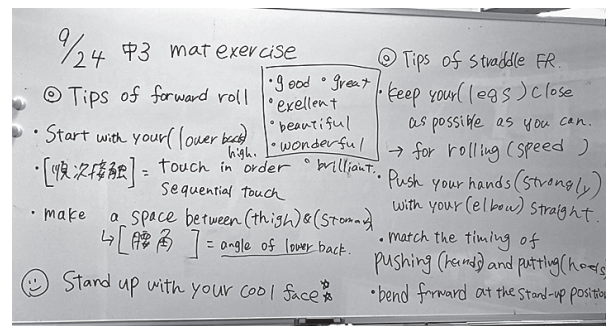 9/24 中3 mat exercise
◎ Tips of forward roll
・Start with your (lower back) high.
・[順次接触] = touch in order
sequential touch
・make a space between (thigh) & (stomach)
↳ [腰角] = angle of lower back.
☺ Stand up with your cool face
・good ・great
・exellent
・beautiful
・wonderful
・brilliant.
◎ Tips of straddle FR.
・keep your (legs) close
as possible as you can.
→ for rolling (speed)
・Push your hands (strongly)
with your (elbow) straight.
・match the timing of
pushing (hands) and putting
・bend forward at the stand-up position